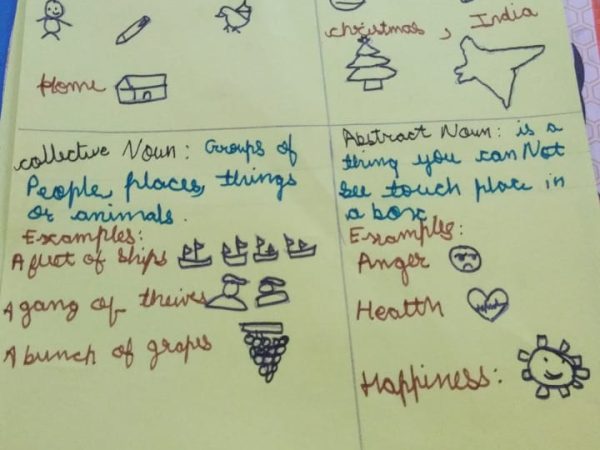 christmas, India
Home
collective Noun: Groups of
People, places, things
or animals.
Examples:
A fleet of ships
A gang of theives
A bunch of grapes
Abstract Noun: is a
thing you can Not
See touch place in
a box.
Examples:
Anger
Health
Happiness: